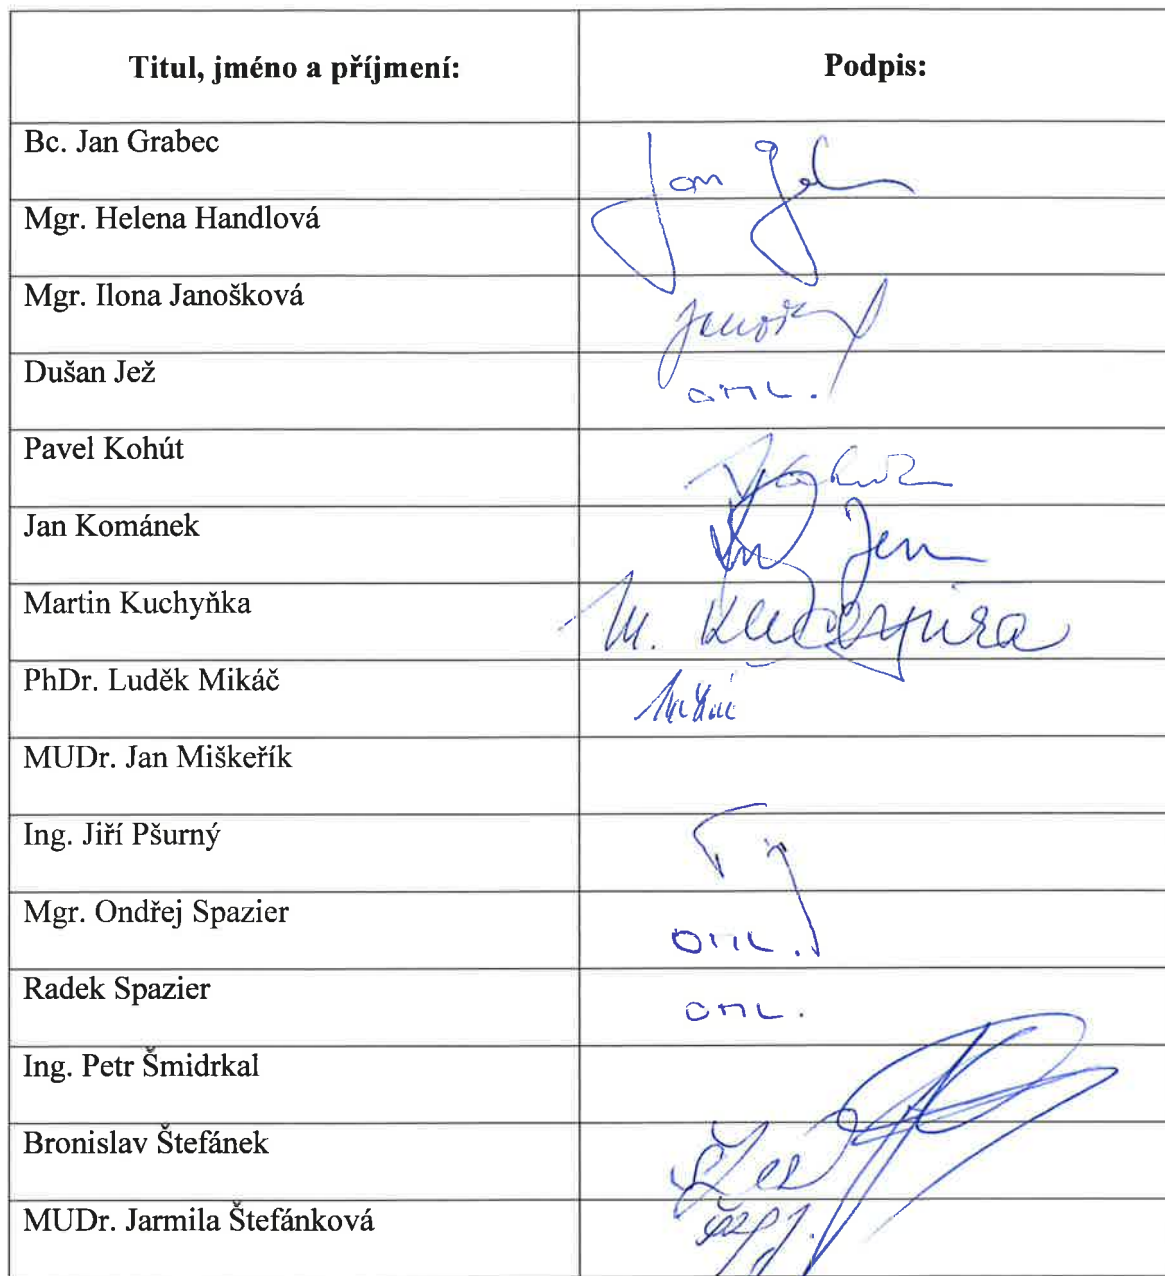 Titul, jméno a příjmení: Podpis:
Bc. Jan Grabec Jan
Mgr. Helena Handlová
Mgr. Ilona Janošková
Dušan Jež OML.
Pavel Kohút
Jan Kománek Jan
Martin Kuchyňka M.
PhDr. Luděk Mikáč
MUDr. Jan Miškeřík
Ing. Jiří Pšurný
Mgr. Ondřej Spazier OML.
Radek Spazier OML.
Ing. Petr Šmidrkal
Bronislav Štefánek
MUDr. Jarmila Štefánková